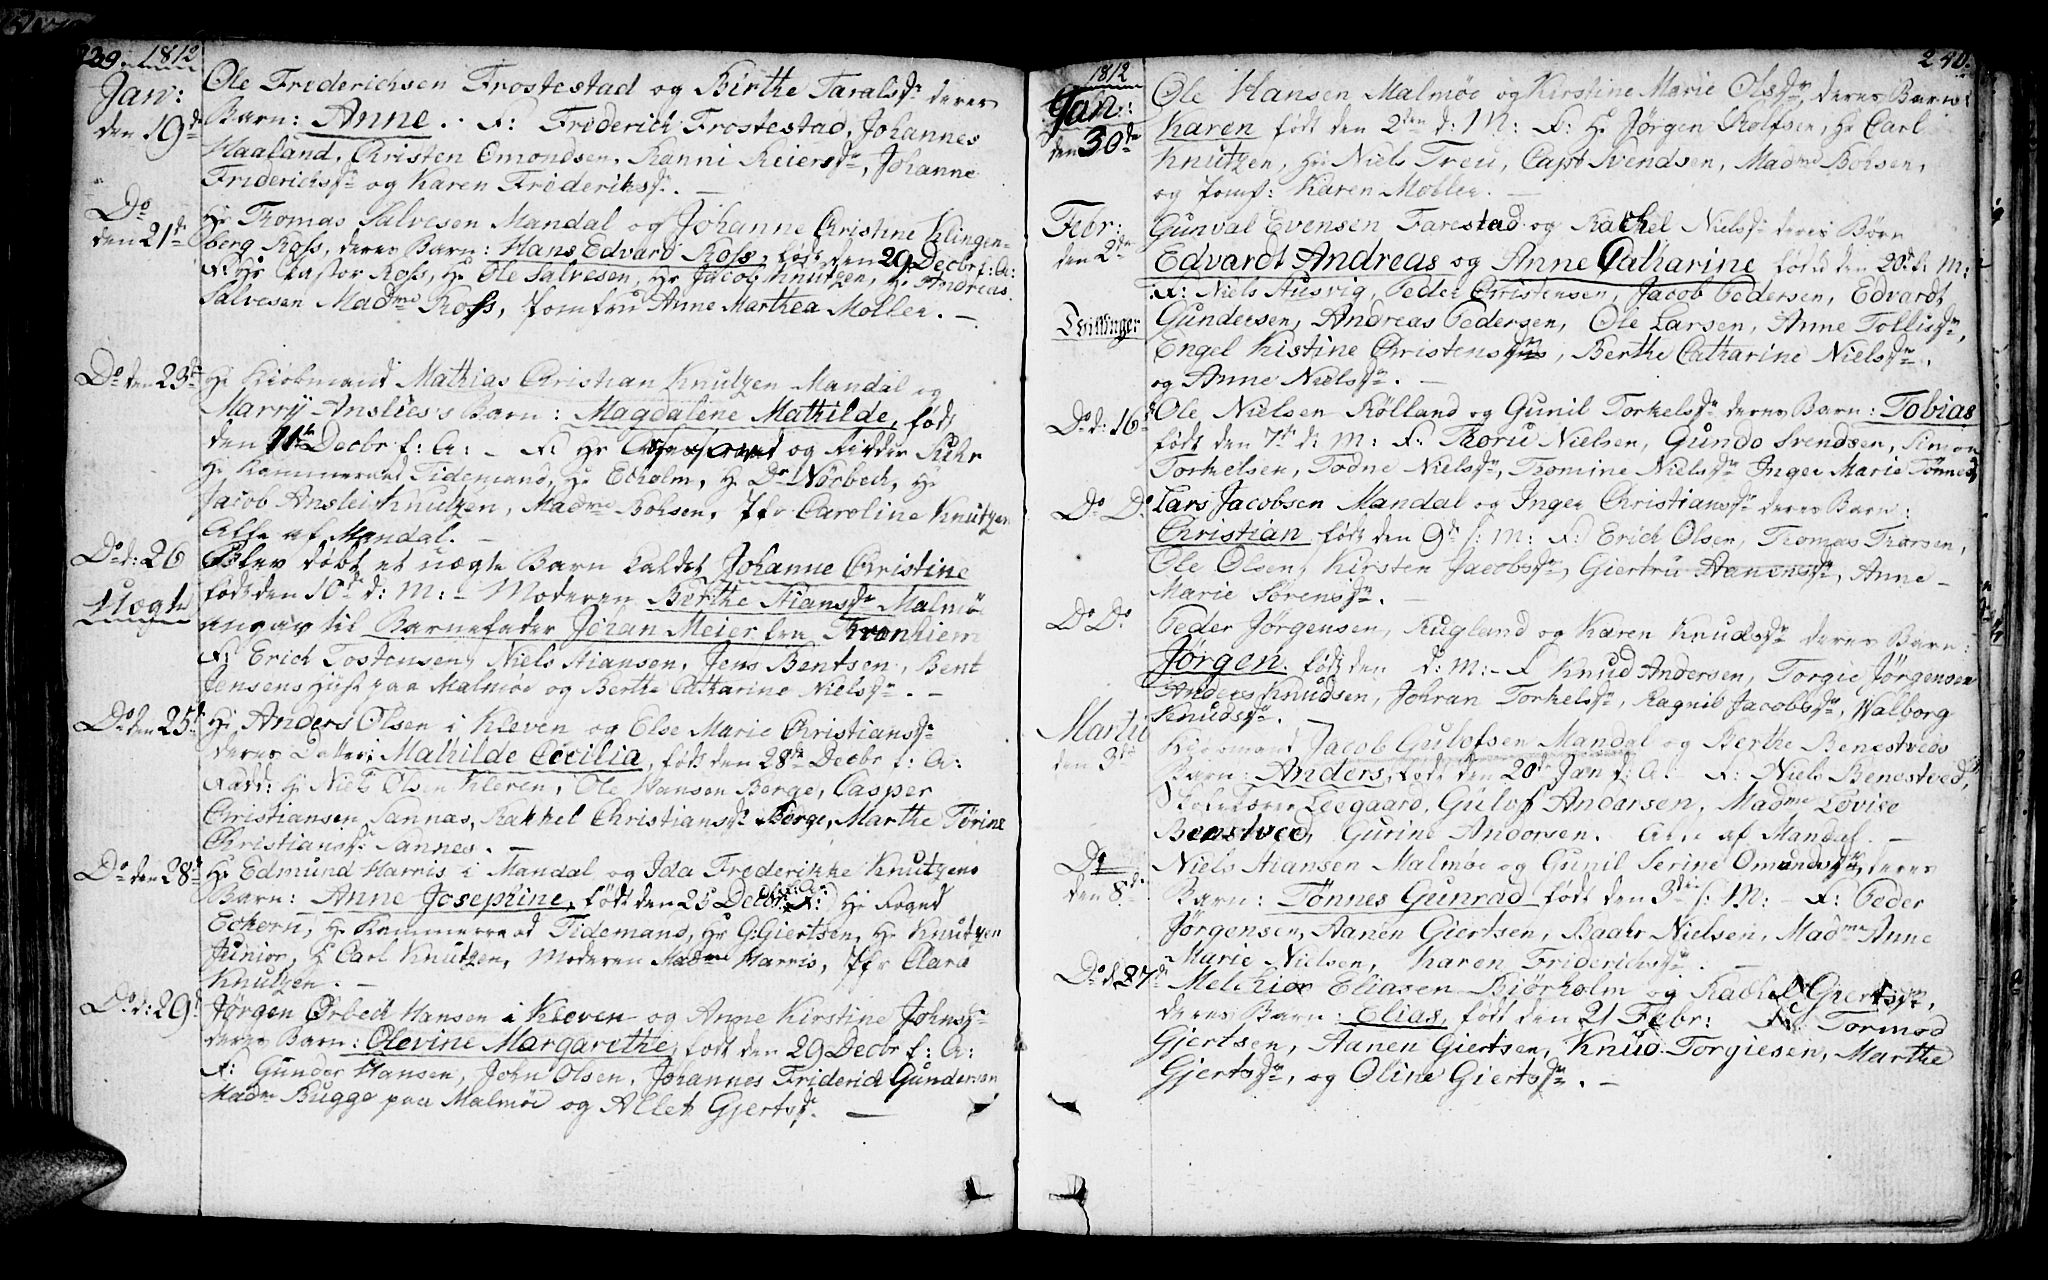 239. 1812
Jan:
den 19de
Ole Friderichsen Frostestad og Birthe Taralsdr deres
Barn: Anne. F: Friderich Frostestad, Johannes
Haaland, Christen Omondsen, Ranni Reiersdr, Johanne
Friderichsdr og Karen Frideriksdr. —
Do
den 21de
Hr Thomas Salvesen Mandal og Johanne Christine Klingen-
berg Ross, deres Barn: Hans Edvard Ross, født den 29 Decbr f: A:
F: Hr Pastor Ross, Hr Ole Salvesen, Hr Jacob Knutzen, Hr Andreas
Salvesen Madme Ross, Jomfru Anne Marthea Møller. —
Do den 23de
Hr Kiøbmand Mathias Christian Knutzen Mandal og
Marry Anslies's Barn: Magdalene Mathilde, født
den 11te Decbr f: A: – F: Hr og Ridder
Hr Kammerraad Tidemand, Hr Eckholm, Hr Dr Nørbech, Hr
Jacob Anslei Knutzen, Madme Bohsen, Jfr Caroline Knutzen
Alle af Mandal. —
Do d: 26
Uægte
Blev døbt et uægte Barn kaldet Johanne Christine
født den 10de d: M: – Moderen Berthe Stiansdr Malmø
angav til Barnefader Johan Meier fra Tronhiem
F: Erich Tostensen, Niels Stiansen, Jens Bentsen, Bent
Jensens Hust paa Malmøe og Berthe Catharine Nielsdr. —
Do den 25de
Hr Anders Olsen i Kleven og Else Marie Christiansdr
deres Datter: Mathilde Cecilia, født den 28de Decbr f: A:
Fadd: Hr Niels Olsen Kleven, Ole Hansen Berge, Casper
Christiansen Sannes, Rakkel Christiansdr Berge, Marthe Tørine
Christiansdr Sannes. —
Do den 28de
Hr Edmund Harris i Mandal og Ida Frederikke Knutzens
Barn: Anne Josephine, født den 25 Decbr f: A: F: Hr Foged
Eckern, Hr Kammerraad Tidemand, Hr G: Giertsen, Hr Knutzen
Junior, Hr Carl Knutzen, Moderen Madme Harris, Jfr Clara
Knutzen. —
Do d: 29de
Jørgen Ørbech Hansen i Kleven og Anne Kirstine Johnsdr
deres Barn: Olevine Margarethe, født den 29 Decbr f: A:
F: Gunder Hansen, John Olsen, Johannes Friderich Gundersen
Madme Bugge paa Malmøe og Allet Gjertsdr. —
1812
240.
Jan:
den 30de
Ole Hansen Malmøe og Kirstine Marie Olsdr, deres Barn:
Karen født den 2den d: M: F: Hr Jørgen Rolfsen, Hr Carl
Knutzen, Hr Niels Treu, Capt Svendsen, Madme Bohsen,
og Jomf: Karen Møller. —
Febr:
den 2den
Tvillinger
Gunval Evensen Farestad og Rachel Nielsdr deres Børn
Edvardt Andreas og Anne Catharine født den 20de f: M:
F: Niels Ausvig, Peder Christensen, Jacob Pedersen, Edvardt
Gundersen, Andreas Pedersen, Ole Larsen, Anne Tollisdr,
Engel Kistine Christensdr, Berthe Catharine Nielsdr,
og Anne Nielsdr. —
Do d: 16de
Ole Nielsen Følland og Gunil Torkelsdr deres Barn: Tobias
født den 7de d: M: F: Thoru Nielsen, Gundo Svendsen, Simon
Torkelsen, Todne Nielsdr, Thomine Nielsdr Inger Marie Tønnes
Do Do
Lars Jacobsen Mandal og Inger Christiansdr deres Barn:
Christian født den 9de f: M: F: Erich Olsen, Thomas Thorsen,
Ole Olsen, Kirsten Jacobsdr, Giertru Aanensdr, Anne
Marie Sørensdr. —
Do Do
Peder Jørgensen, Rugland og Karen Knudsdr deres Barn:
Jørgen. født den d: M: – F Knud Andersen, Torgie Jørgensen
Anders Knudsen, Johran Torkelsdr, Ragnil Jacobsdr, Walborg
Knudsdr. —
Martii
den 3die
Kiøbmand Jacob Gulofsen Mandal og Berthe Benestveds
Barn: Anders, født den 20de Jan d: A: F: Niels Benestved,
Leegaard, Gulof Andersen, Madme Lovise
Benestved, Gurine Andersen. Alle af Mandal. —
Do
den 8de
Niels Stiansen Malmøe og Gunil Serine Omundsdr, deres
Barn: Tønnes Gunrad født den 3die f: M: – F: Peder
Jørgensen, Aanen Giertsen, Baahr Nielsen, Madme Anne
Marie Nielsen, Karen Friderichsdr. —
Do d: 27de
Melchior Eliasen Biørholm og Rachel Giertsdr,
deres Barn: Elias, født den 21 Febr: F: Tormod
Gjertsen, Aanen Giertsen, Knud Torgiesen, Marthe
Gjertsdr, og Oline Giertsdr. —